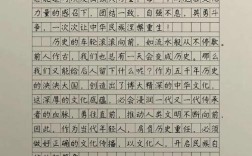 力量的感召下，团结一致，自强不息，英勇斗
争，一次次让中华民族涅槃重生！
历史的车轮滚滚向前，如流水般从不停歇
前人作古，我们也总有一天会变成历史，那么
我们又能给后人留下什么呢？作为五千年历史
的泱泱大国，创造出了博大精深的中华文化，
这深厚的文化底蕴，必会浸润一代又一代传承
者的血脉，勇往直前，推动人类文明不断向前
因此，作为当代年轻人，肩负历史重任，必须
做好正确的文化传播，以文化人，开启民族自